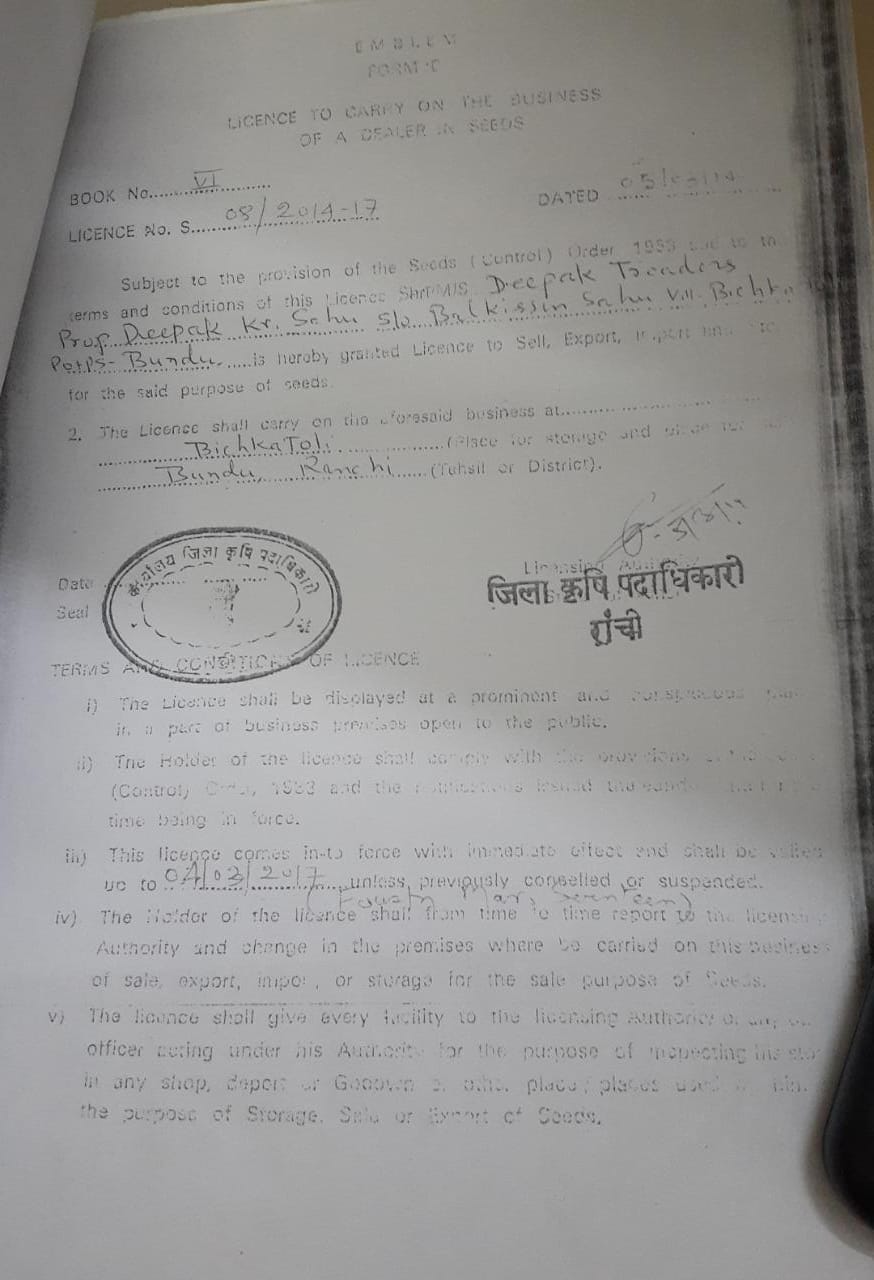 EMBLEM
FORM 'C'
LICENCE TO CARRY ON THE BUSINESS
OF A DEALER IN SEEDS
BOOK No......VI............
DATED 05/
LICENCE No. S......08/2014-17
Subject to the provision of the Seeds (Control) Order, 1983 and to the
terms and conditions of this Licence Shri/M/S Deepak Traders
Prop. Deepak Kr. Sahu S/o Balkissin Sahu Vill-
Po+PS- Bundu......is hereby granted Licence to Sell, Export, Import and
for the said purpose of seeds.
2. The Licence shall carry on the aforesaid business at............
BichkaToli..................(Place for storage and place for
Bundu, Ranchi......(Tehsil or District).
Date
Seal
कार्यालय जिला कृषि पदाधिकारी
Licensing
जिला कृषि पदाधिकारी
रांची
TERMS AND CONDITIONS OF LICENCE
i) The Licence shall be displayed at a prominent and
in a part of business premises open to the public.
ii) The Holder of the licence shall comply with the provisions
(Control) Order, 1983 and the notifications issued
time being in force.
iii) This licence comes in-to force with immediate effect and shall be
up to 04/03/2017 unless previously conselled or suspended.
(Fourth Mar, Seventeen)
iv) The Holder of the licence shall from time to time report to the licensing
Authority and change in the premises where be carried on this business
of sale, export, import, or storage for the sale purpose of Seeds.
v) The licence shall give every facility to the licensing Authority or any
officer acting under his Authority for the purpose of inspecting his
in any shop, deport or Godown or other place/places used
the purpose of Storage, Sale or Export of Seeds.